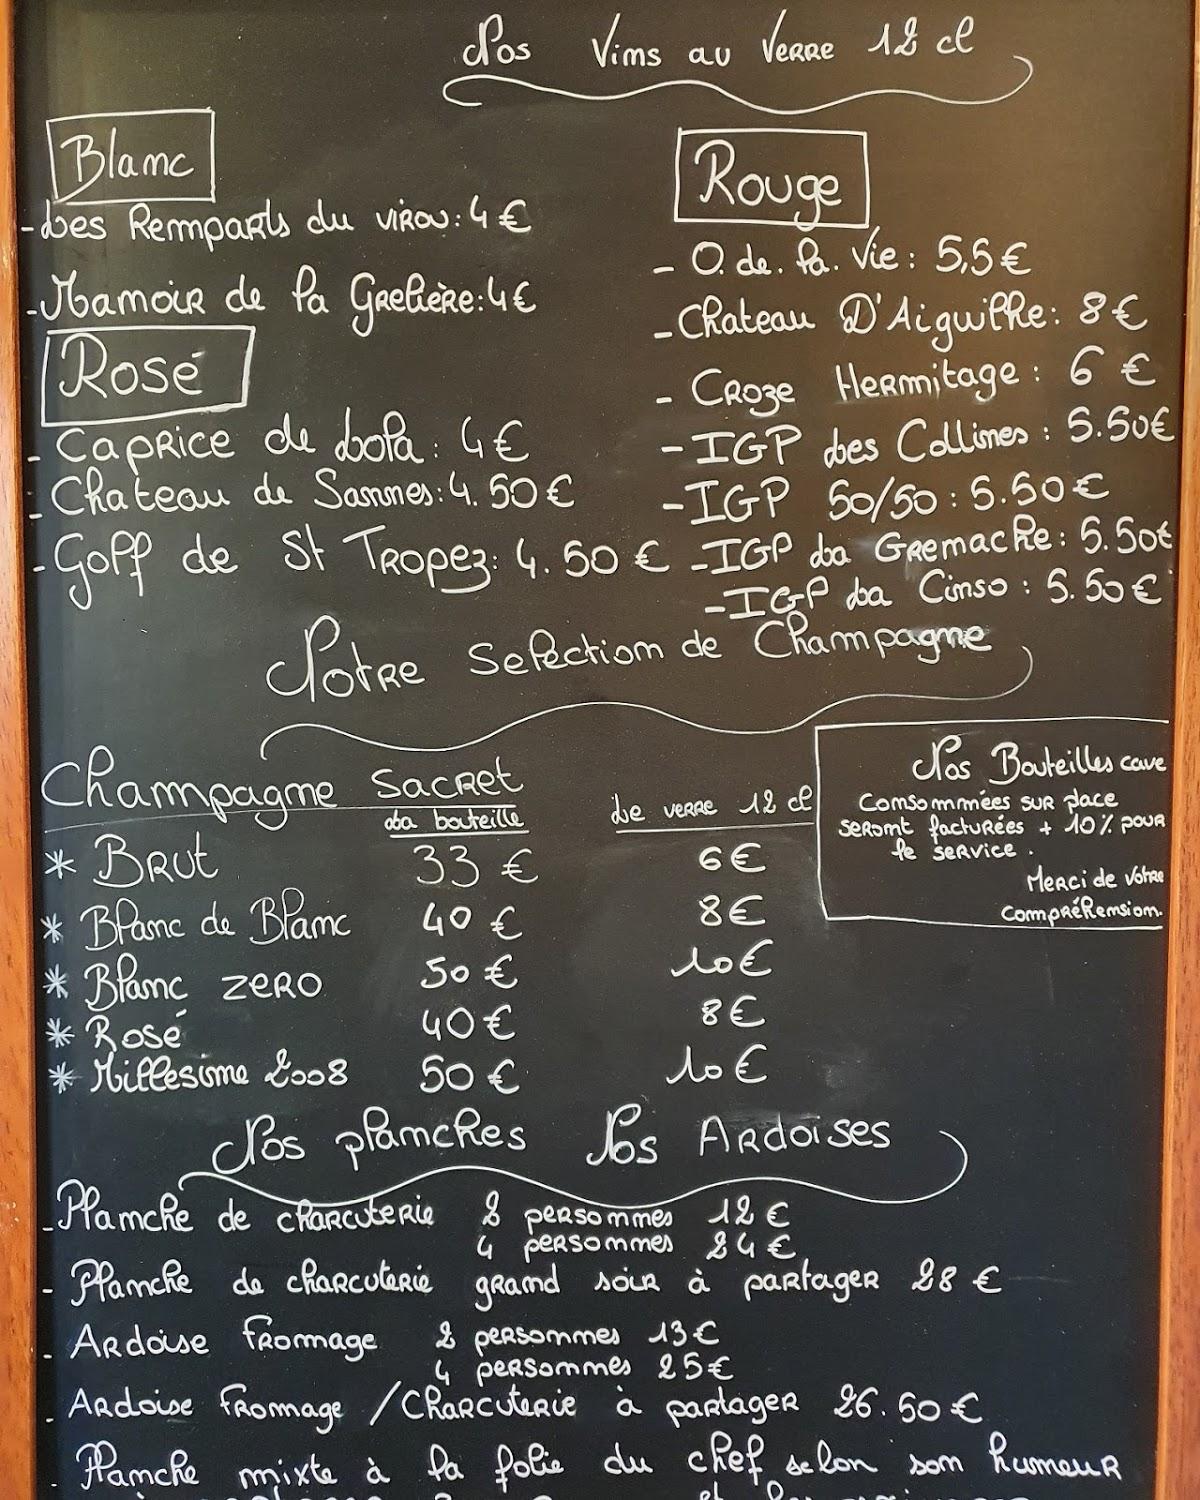 Nos Vins au Verre 12 cl
Blanc
- Les Remparts du virou : 4 €
- Manoir de la Grelière : 4 €
Rosé
- Caprice de Lola : 4 €
- Chateau de Sannes : 4.50 €
- Golf de St Tropez : 4.50 €
Rouge
- O. de. la. Vie : 5,5 €
- Chateau D'Aiguilhe : 8 €
- Croze Hermitage : 6 €
- IGP Les Collines : 5.50 €
- IGP 50/50 : 5.50 €
- IGP La Grenache : 5.50 €
- IGP La Cinso : 5.50 €
Notre Selection de Champagne
Champagne Sacret
La bouteille Le verre 12 cl
* Brut 33 € 6 €
* Blanc de Blanc 40 € 8 €
* Blanc zero 50 € 10 €
* Rosé 40 € 8 €
* Millesime 2008 50 € 10 €
Nos Bouteilles cave
Consommées sur place
seront facturées + 10% pour
le service.
Merci de votre
compréhension.
Nos planches Nos Ardoises
- Planche de charcuterie 2 personnes 12 €
4 personnes 24 €
- Planche de charcuterie grand soir à partager 28 €
- Ardoise fromage 2 personnes 13 €
4 personnes 25 €
- Ardoise fromage / Charcuterie à partager 26.50 €
- Planche mixte à la folie du chef selon son humeur